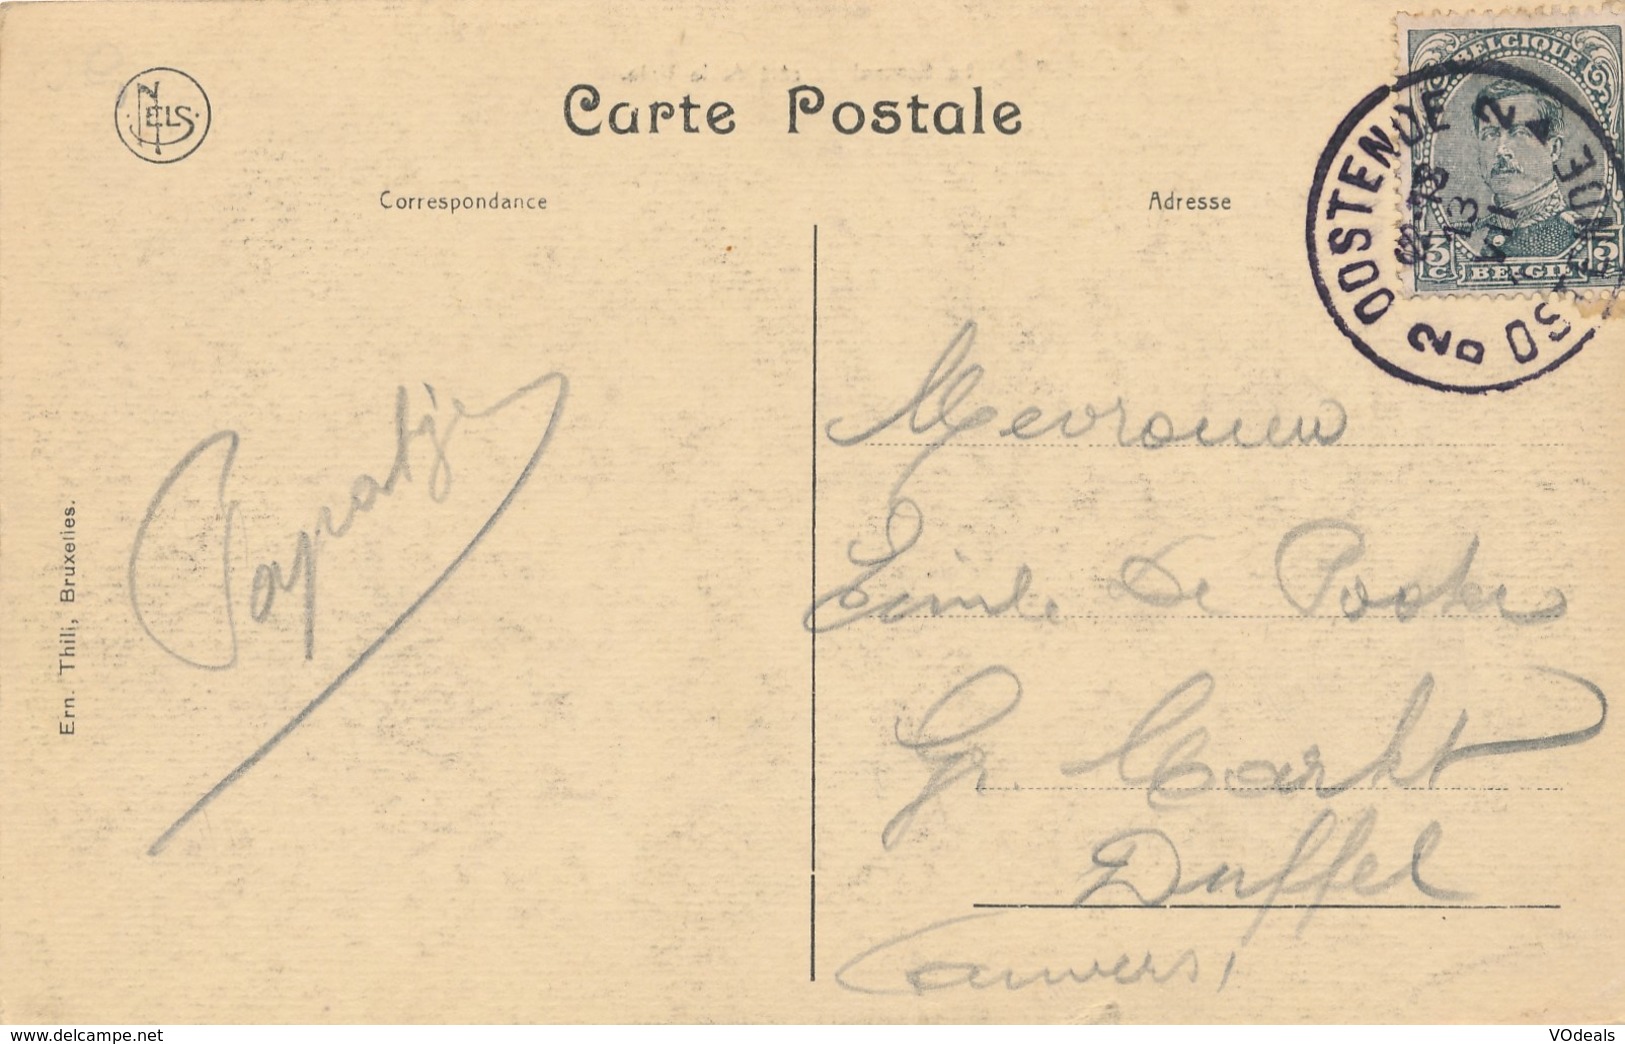 NELS
Carte Postale
Correspondance
Adresse
BELGIQUE
5c BELGIË 5c
OOSTENDE 2
OSTENDE 2D
13
VII
Ern. Thill, Bruxelles.
Mevrouw
Emile De Pooter
Gr. Markt
Duffel
(Anvers)
https://www.delcampe.net
VOdeals